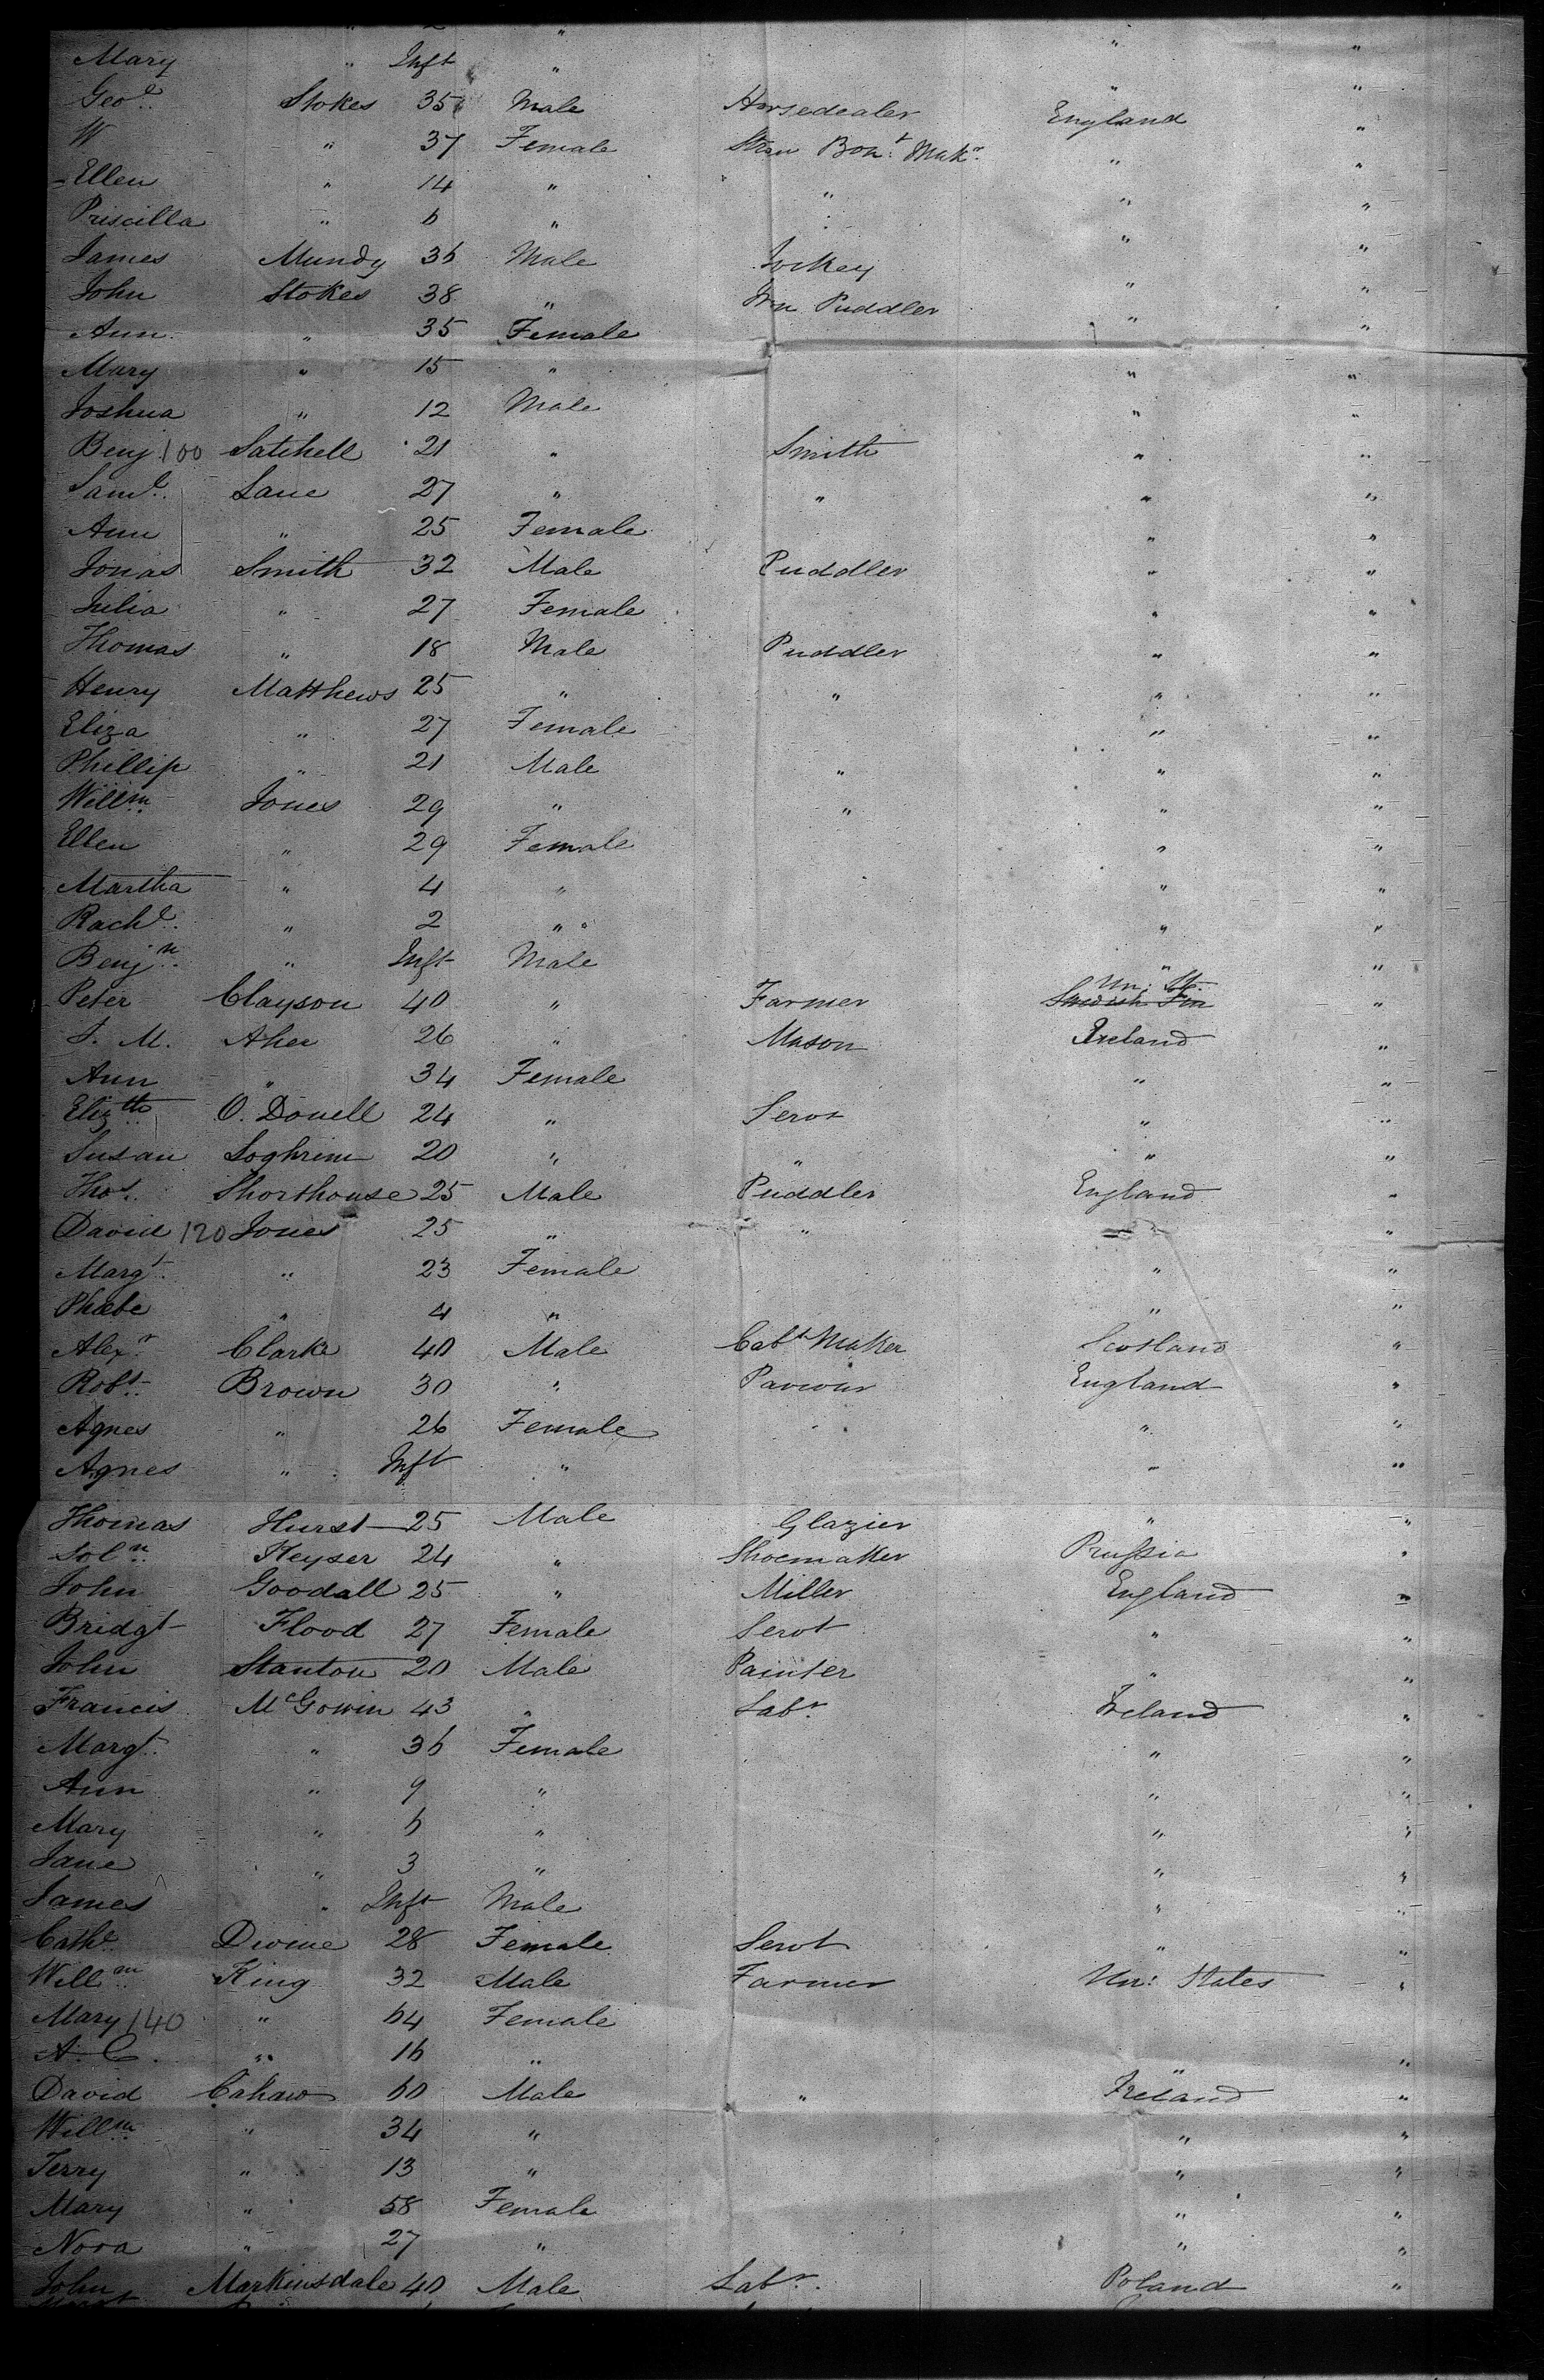 Mary " Inft " " "
Geo.e Stokes 35 Male Horsedealer England "
W " 37 Female Straw Bon.t Mak.r " "
Ellen " 14 " " " "
Priscilla " 6 " " "
James Mundy 36 Male Jockey " "
John Stokes 38 " Irn Puddler " "
Ann " 35 Female " "
Mary " 15 " " "
Joshua " 12 Male " "
Benj. 100 Satchell 21 " Smith " "
Sam.l Lane 27 " " " "
Ann " 25 Female " "
Jonas Smith 32 Male Puddler " "
Julia " 27 Female " "
Thomas " 18 Male Puddler " "
Henry Matthews 25 " " " "
Eliza " 27 Female " "
Phillip " 21 Male " " "
Willm Jones 29 " " " "
Ellen " 29 Female " "
Martha " 4 " " "
Rach.l " 2 " " "
Benj.n " Inft Male " "
Peter Clayson 40 " Farmer Un: St. "
J. M. Aher 26 " Mason Ireland "
Ann " 34 Female " "
Eliz.th O. Donell 24 " Servt " "
Susan Loghrim 20 " " " "
Thos. Shorthouse 25 Male Puddler England "
David 120 Jones 25 " " " "
Marg.t " 23 Female " "
Phœbe " 4 " " "
Alex.r Clarke 40 Male Cab.t Maker Scotland "
Rob.t Brown 30 " Paviour England "
Agnes " 26 Female " "
Agnes " Inft " " "
Thomas Hurst 25 Male Glazier " "
Sol.n Heyser 24 " Shoemaker Prussia "
John Goodall 25 " Miller England "
Bridgt Flood 27 Female Servt " "
John Stanton 20 Male Painter " "
Francis McGowin 43 " Lab.r Ireland "
Margt. " 36 Female " "
Ann " 9 " " "
Mary " 6 " " "
Jane " 3 " " "
James " Inft Male " "
Cath.e Divine 28 Female Servt " "
Will.m King 32 Male Farmer Un: States "
Mary 140 " 64 Female
A. C. " 16 " " "
David Cahaw 60 Male " Ireland "
Will.m " 34 " " "
Terry " 13 " " "
Mary " 58 Female " "
Nora " 27 " " "
John Markinsdale 40 Male Lab.r Poland "